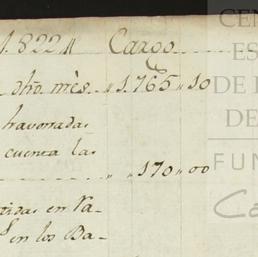 1.822 Cargo
dho. mès. " 1.765 " 10
havorradas
cuenta las
" " 170 " 00
tidas en Va-
en los Ba-
CEN
ES
DE
DE
FUN
Ca